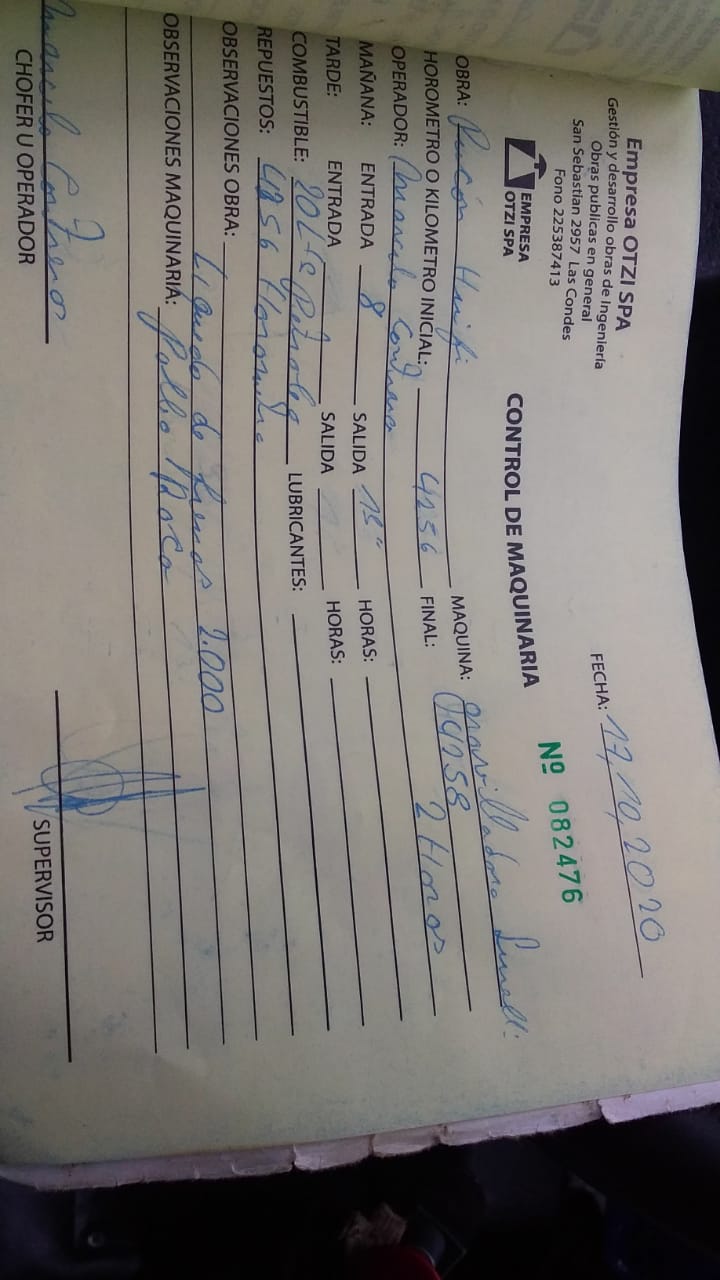 Empresa OTZI SPA
Gestión y desarrollo obras de Ingeniería
Obras publicas en general
San Sebastian 2957 Las Condes
Fono 225387413
FECHA: 17,10,2020
EMPRESA
OTZI SPA
CONTROL DE MAQUINARIA
Nº 082476
OBRA: Rincón MAQUINA:
HOROMETRO O KILOMETRO INICIAL: 4256 FINAL: 4258
OPERADOR: 2 Horas
MAÑANA: ENTRADA 8 SALIDA HORAS:
TARDE: ENTRADA SALIDA HORAS:
COMBUSTIBLE: 20 Lts Petroleo LUBRICANTES:
REPUESTOS: 4256 Horometro
OBSERVACIONES OBRA:
Liquido de frenos 2.000
OBSERVACIONES MAQUINARIA: Pablo Roca
CHOFER U OPERADOR
SUPERVISOR